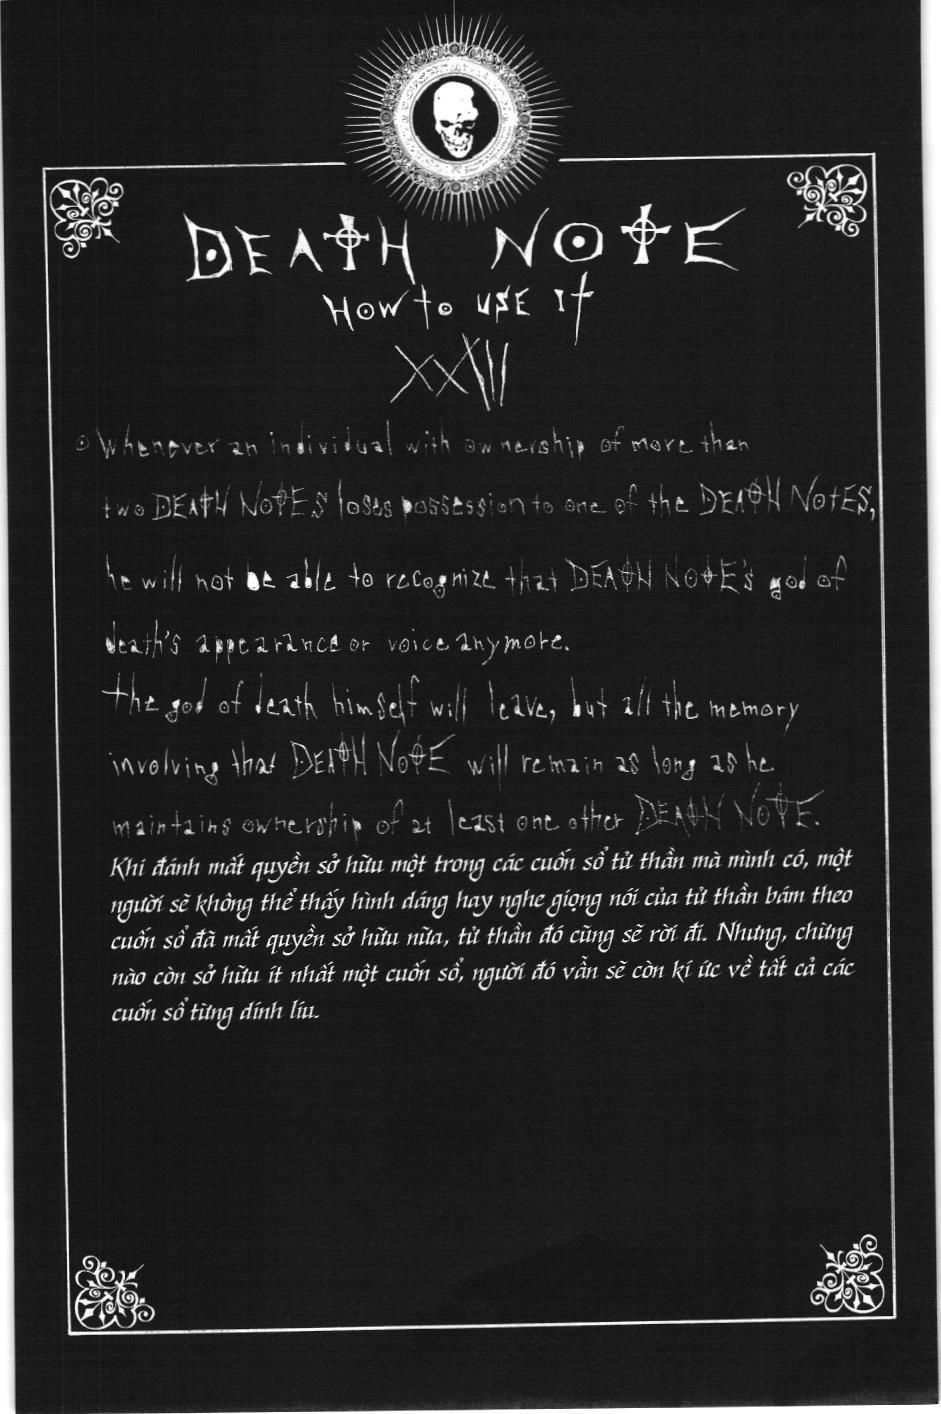 DEATH NOTE
HOW to USE It
XXII
Whenever an individual with ownership of more than
two DEATH NOTES loses possession to one of the DEATH NOtES,
he will not be able to recognize that DEATH NOTE's god of
death's appearance or voice anymore.
the god of death himself will leave, but all the memory
involving that DEATH NOTE will remain as long as he
maintains ownership of at least one other DEATH NOTE.
Khi đánh mất quyền sở hữu một trong các cuốn sổ tử thần mà mình có, một
người sẽ không thể thấy hình dáng hay nghe giọng nói của tử thần bám theo
cuốn sổ đã mất quyền sở hữu nữa, tử thần đó cũng sẽ rời đi. Nhưng, chừng
nào còn sở hữu ít nhất một cuốn sổ, người đó vẫn sẽ còn kí ức về tất cả các
cuốn sổ từng dính líu.